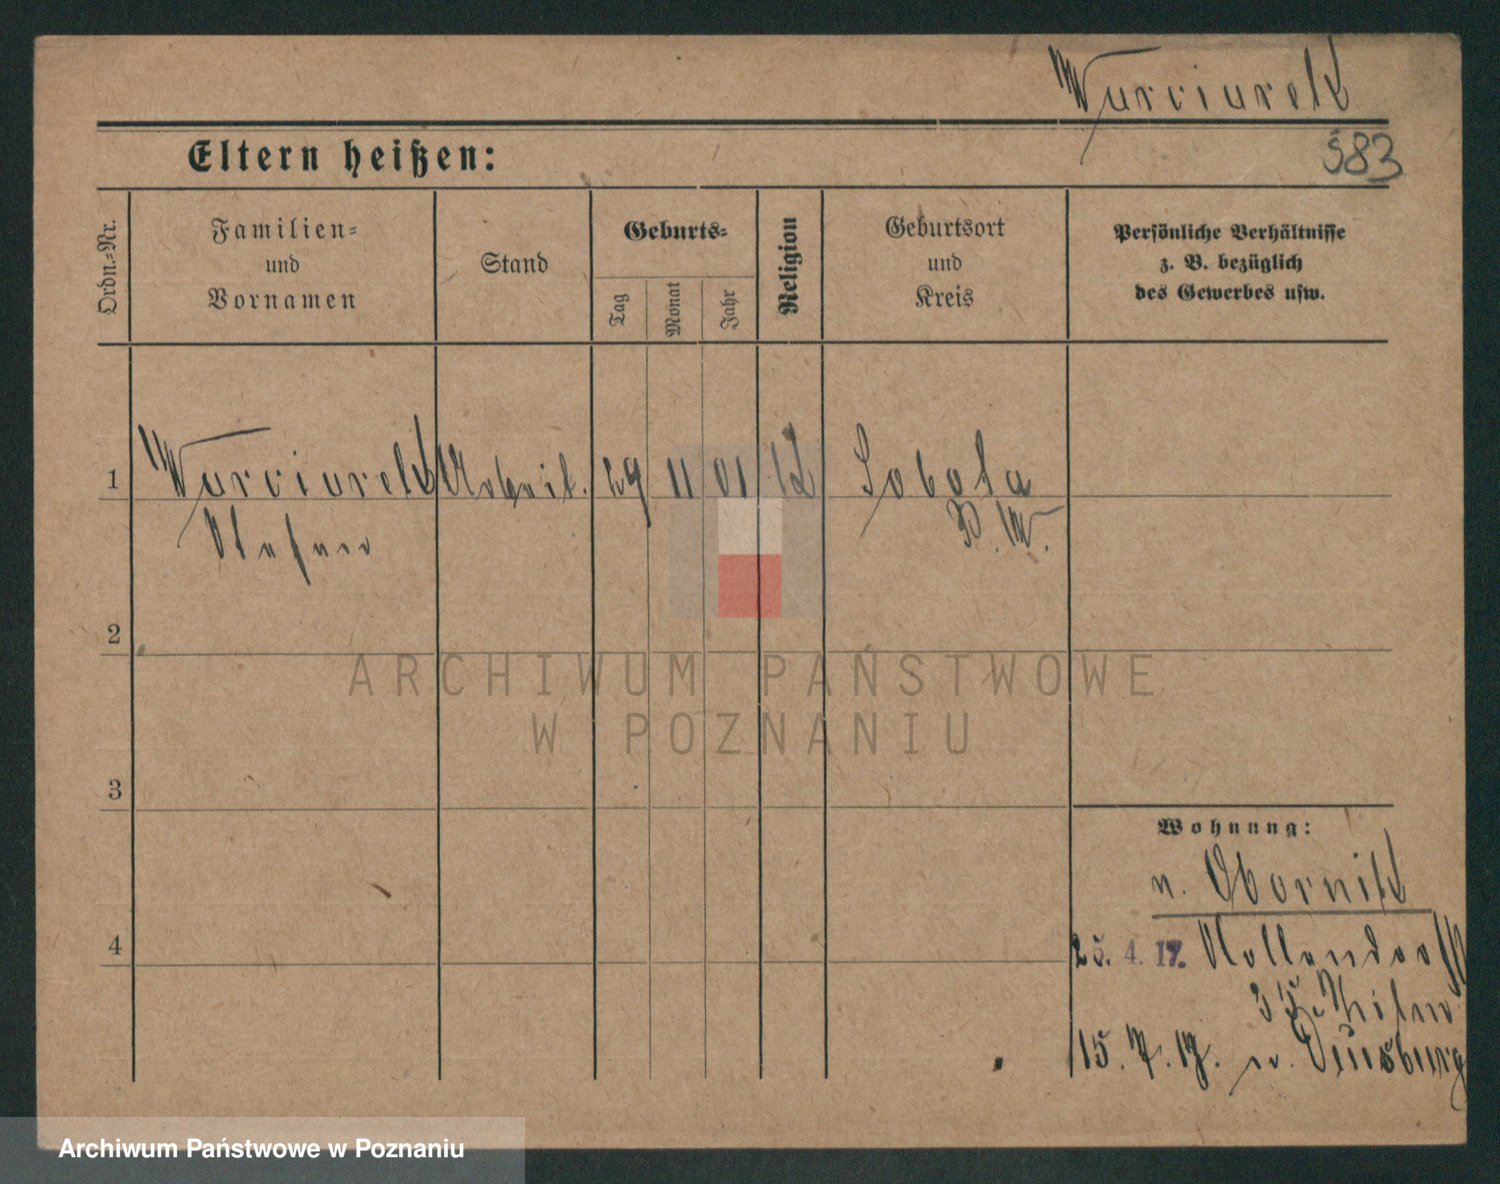 Wurciurek
583
Eltern heißen:
Ordn.-Nr.
Familien- und Vornamen
Stand
Geburts-
Tag
Monat
Jahr
Religion
Geburtsort und Kreis
Persönliche Verhältnisse
z. B. bezüglich
des Gewerbes usw.
1 Wurciurek Arbeit. 29 11 01 k Sobota
P. W.
2
3
4
Wohnung:
n. Obornik
25. 4. 17.
15. 7. 17. n. Duisburg
ARCHIWUM PAŃSTWOWE
W POZNANIU
Archiwum Państwowe w Poznaniu